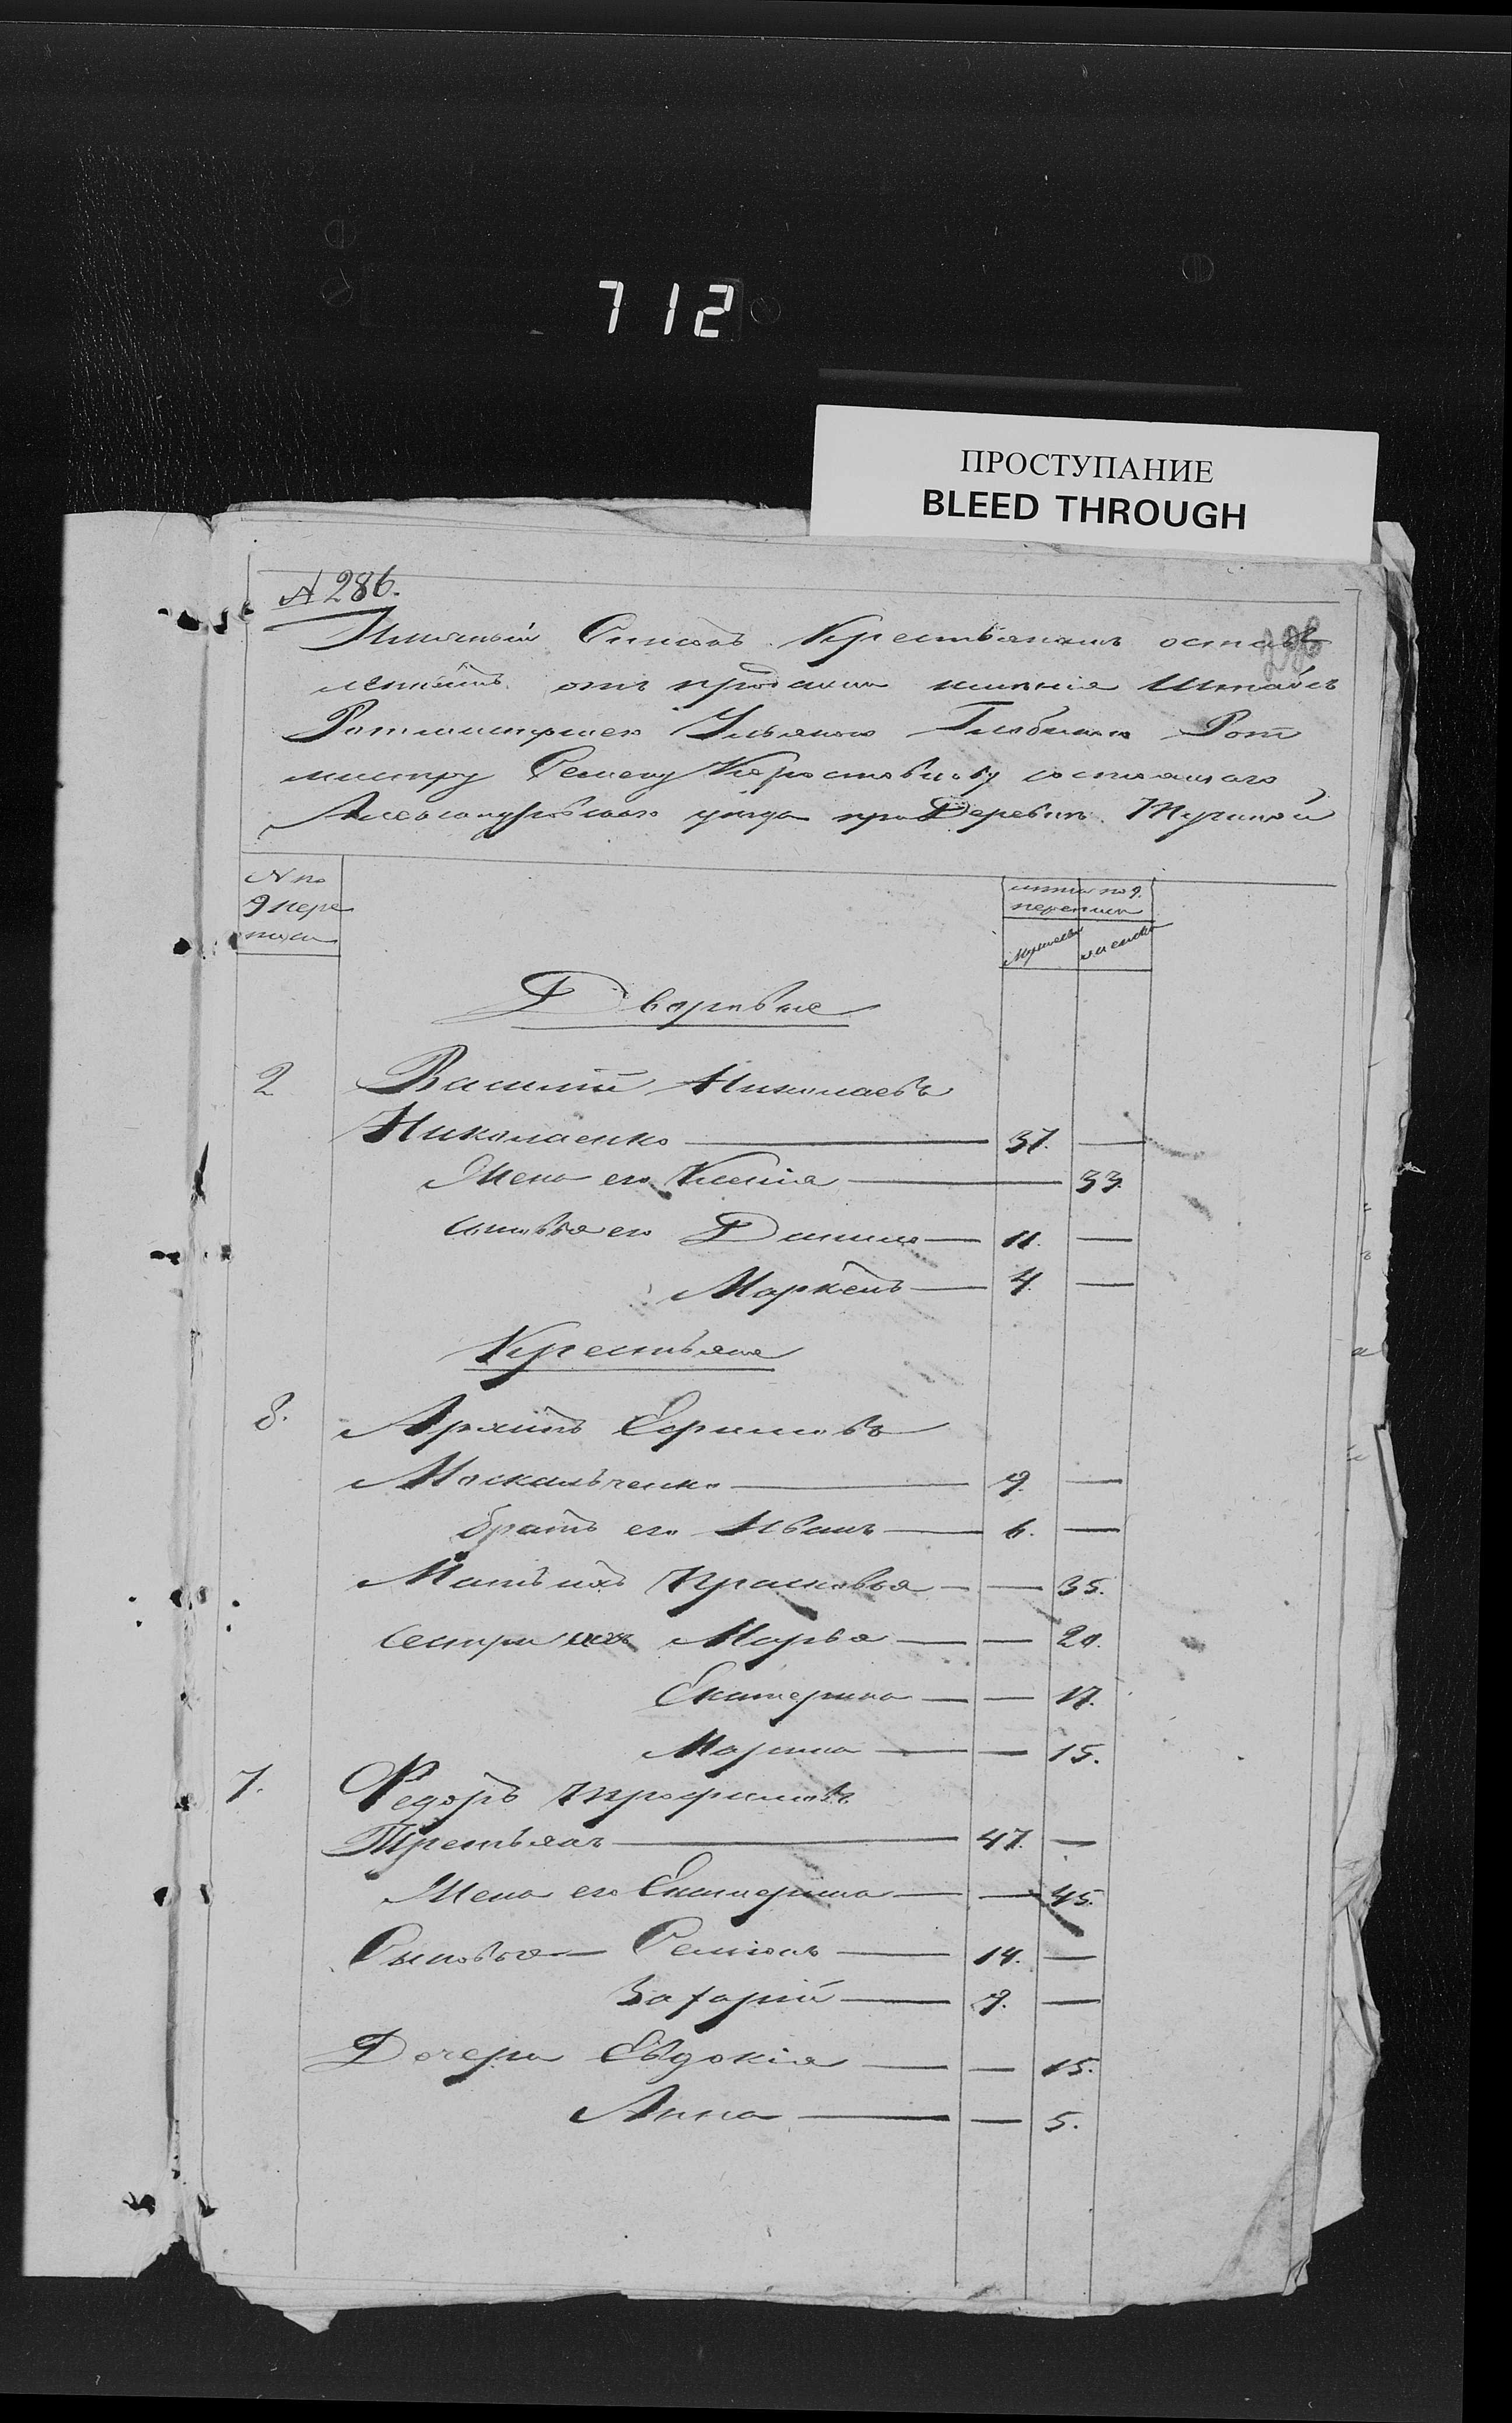 712
ПРОСТУПАНИЕ
BLEED THROUGH
А 286.
Имянный Списокъ Крестьянамъ остав
отъ продажи имѣнія Штабсъ
Ротмистршею Ульяною Ротъ
мистру Семену Коростовцову состоящаго
Александровскаго уѣзда при Деревнѣ
№ по
9 пере
писи
лѣта по 9.
переписи
Мужеска женска
Дворовые
2 Василий Николаевъ
Николаенко 37.
Жена его Ксенія 33.
сыновья его Данило 11.
Маркелъ 4.
Крестьяне
8. Ефимовъ
Москальченко 9.
братъ его Иванъ 6.
Мать ихъ Прасковья 35.
сестры ихъ Марья 20.
Екатерина 17.
Марина 15.
7. Федоръ Трофимовъ
Третьякъ 47.
Жена его Екатерина 45.
Сыновья Семіонъ 14.
Захарій 9.
Дочери Евдокія 15.
Анна 5.